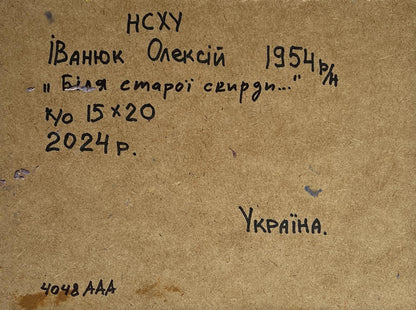 НСХУ
Іванюк Олексій 1954 р/н
„Біля старої скирди..."
к/о 15х20
2024 р.
Україна.
4048 ААА